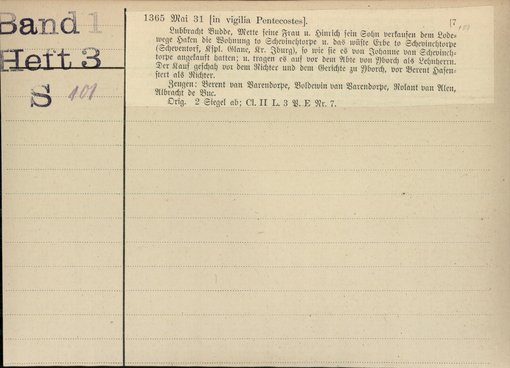 Band 1
Heft 3
S 101
1365 Mai 31 [in vigilia Pentecostes]. [7
101
Lubbracht Budde, Mette seine Frau u. Hinrich sein Sohn verkaufen dem Lode-
wege Haken die Wohnung to Schevinchtorpe u. das wüste Erbe to Schevinchtorpe
(Scheventorf, Kspl. Glane, Kr. Iburg), so wie sie es von Johanne van Schevinch-
torpe angekauft hatten; u. tragen es auf vor dem Abte von Yborch als Lehnherrn.
Der Kauf geschah vor dem Richter und dem Gerichte zu Yborch, vor Berent Hasen-
stert als Richter.
Zeugen: Berent van Varendorpe, Boldewin van Varendorpe, Rolant van Alen,
Albracht de Buc.
Orig. 2 Siegel ab; Cl. II L. 3 P. E Nr. 7.